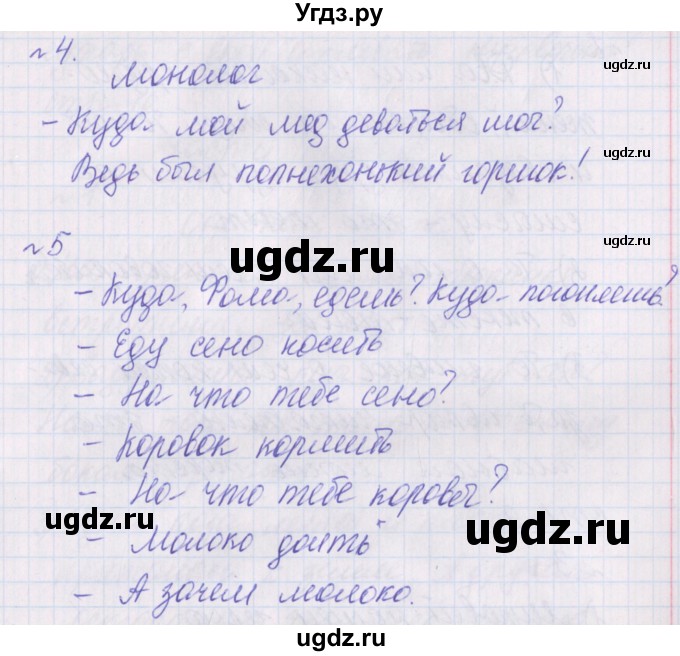 Угдз.ру
№4.
ugdz.ru
монолог
- Куда мой мёд деваться мог?
ugdz.ru
Ведь был полнехонький горшок!
№5
ugdz.ru
ugdz.ru
- Куда, Фома, едешь? Куда погоняешь?
- Еду сено косить
ugdz.ru
- На что тебе сено?
ugdz.ru
- Коровок кормить
ugdz.ru
- На что тебе коровы?
ugdz.ru
ugdz.ru
- Молоко доить
- А зачем молоко.
ugdz.ru
ugdz.ru